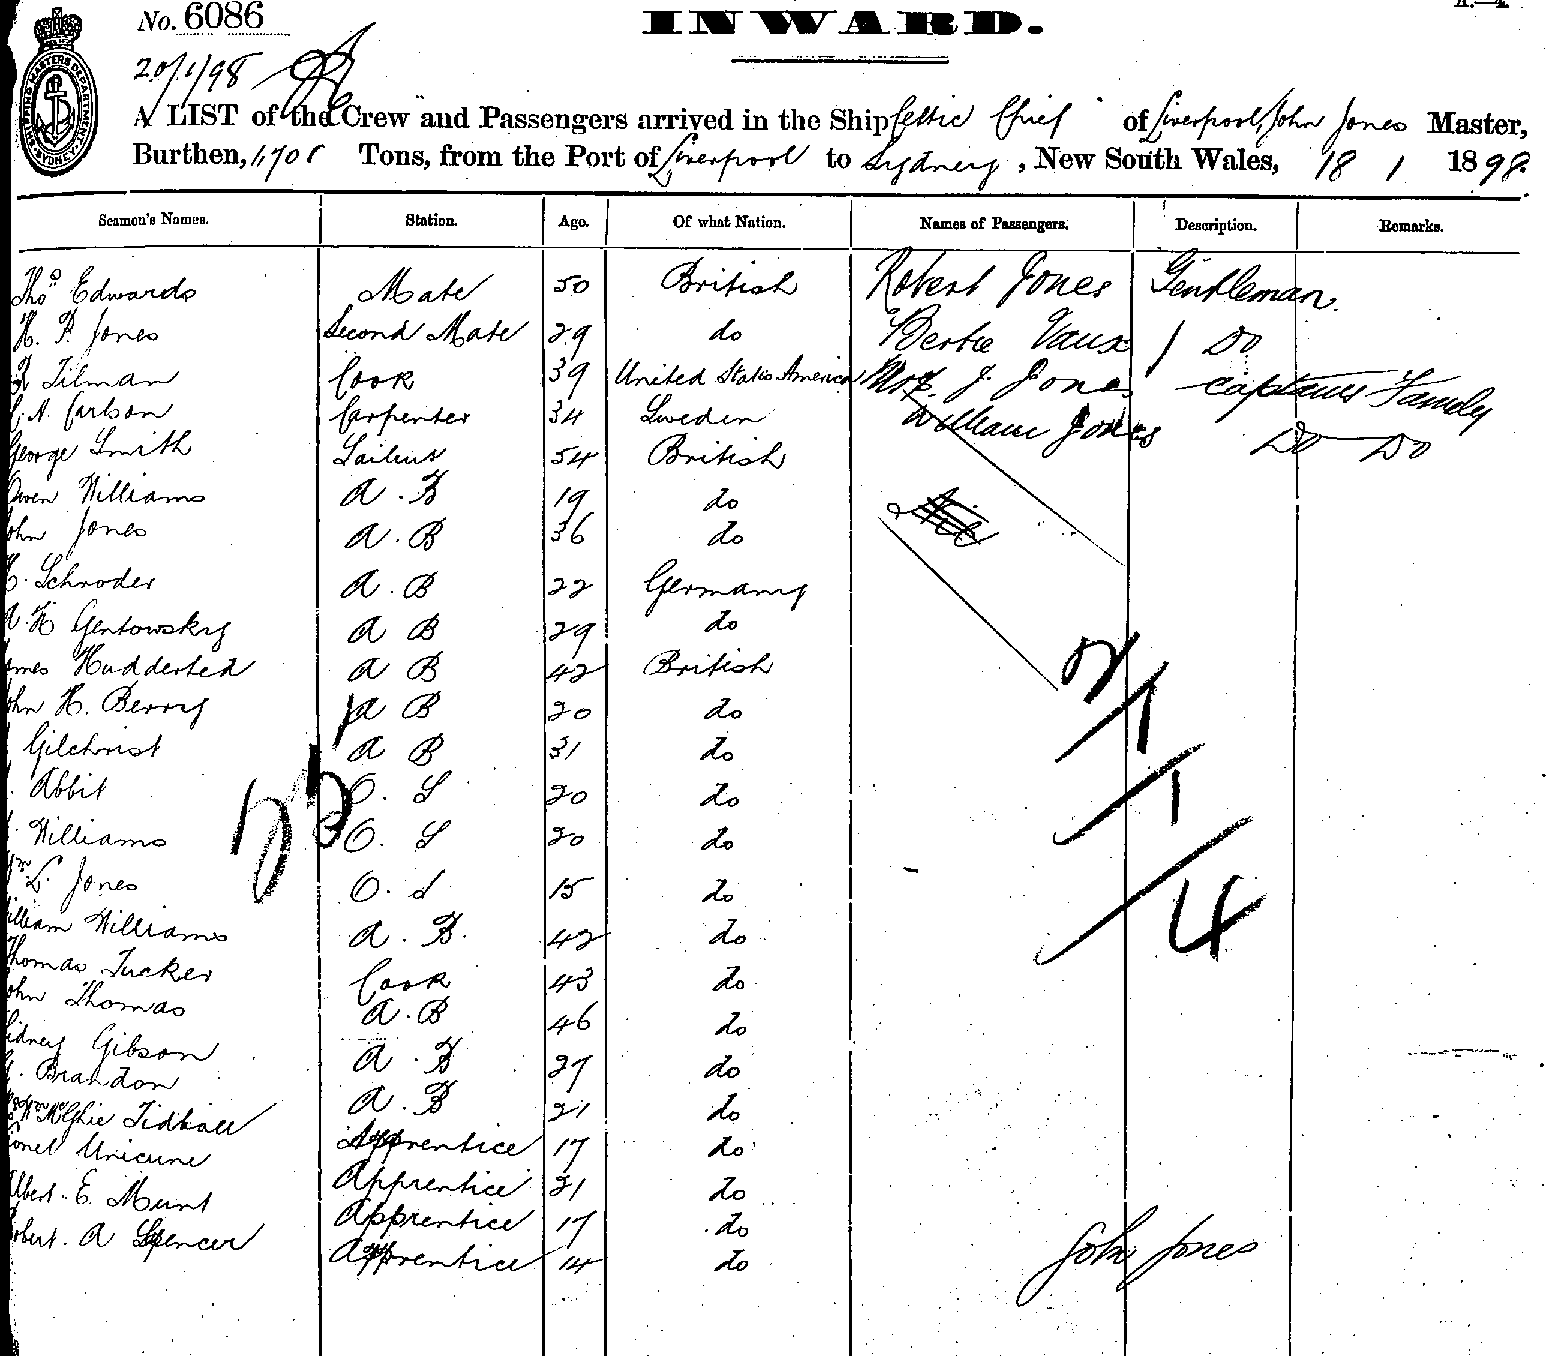 No. 6086
INWARD.
20/1/98
A LIST of the Crew and Passengers arrived in the Ship Celtic Chief of Liverpool, John Jones Master,
Burthen, 1,701 Tons, from the Port of Liverpool to Sydney, New South Wales, 18 1 1898.
Seamen's Names. Station. Age. Of what Nation. Names of Passengers. Description. Remarks.
Thos Edwards Mate 50 British Robert Jones Gentleman
H. P. Jones Second Mate 29 do Bertie Vaux 1 Do
Tilman Cook 39 United States America Mrs. J. Jones Captains Family
A. Carlson Carpenter 34 Sweden William Jones Do Do
George Smith 54 British
Owen Williams A.B 19 do Nil
John Jones A.B 36 do
Schroder A.B 22 Germany
H Gentowsky A B 29 do
James A B 42 British
John H. Berry A B 20 do
Gilchrist A B 31 do
Abbit O. S 20 do
Williams O. S 20 do
Wm L. Jones O. S 15 do
William Williams A. B. 42 do
Thomas Tucker Cook 43 do
John Thomas A.B 46 do
Sidney Gibson A.B 27 do
Brandon A.B 21 do
Tidball Apprentice 17 do
Lionel Apprentice 21 do
Albert. E. Munt Apprentice 17 do
Robert. A Spencer Apprentice 14 do
2/1/1/4
John Jones